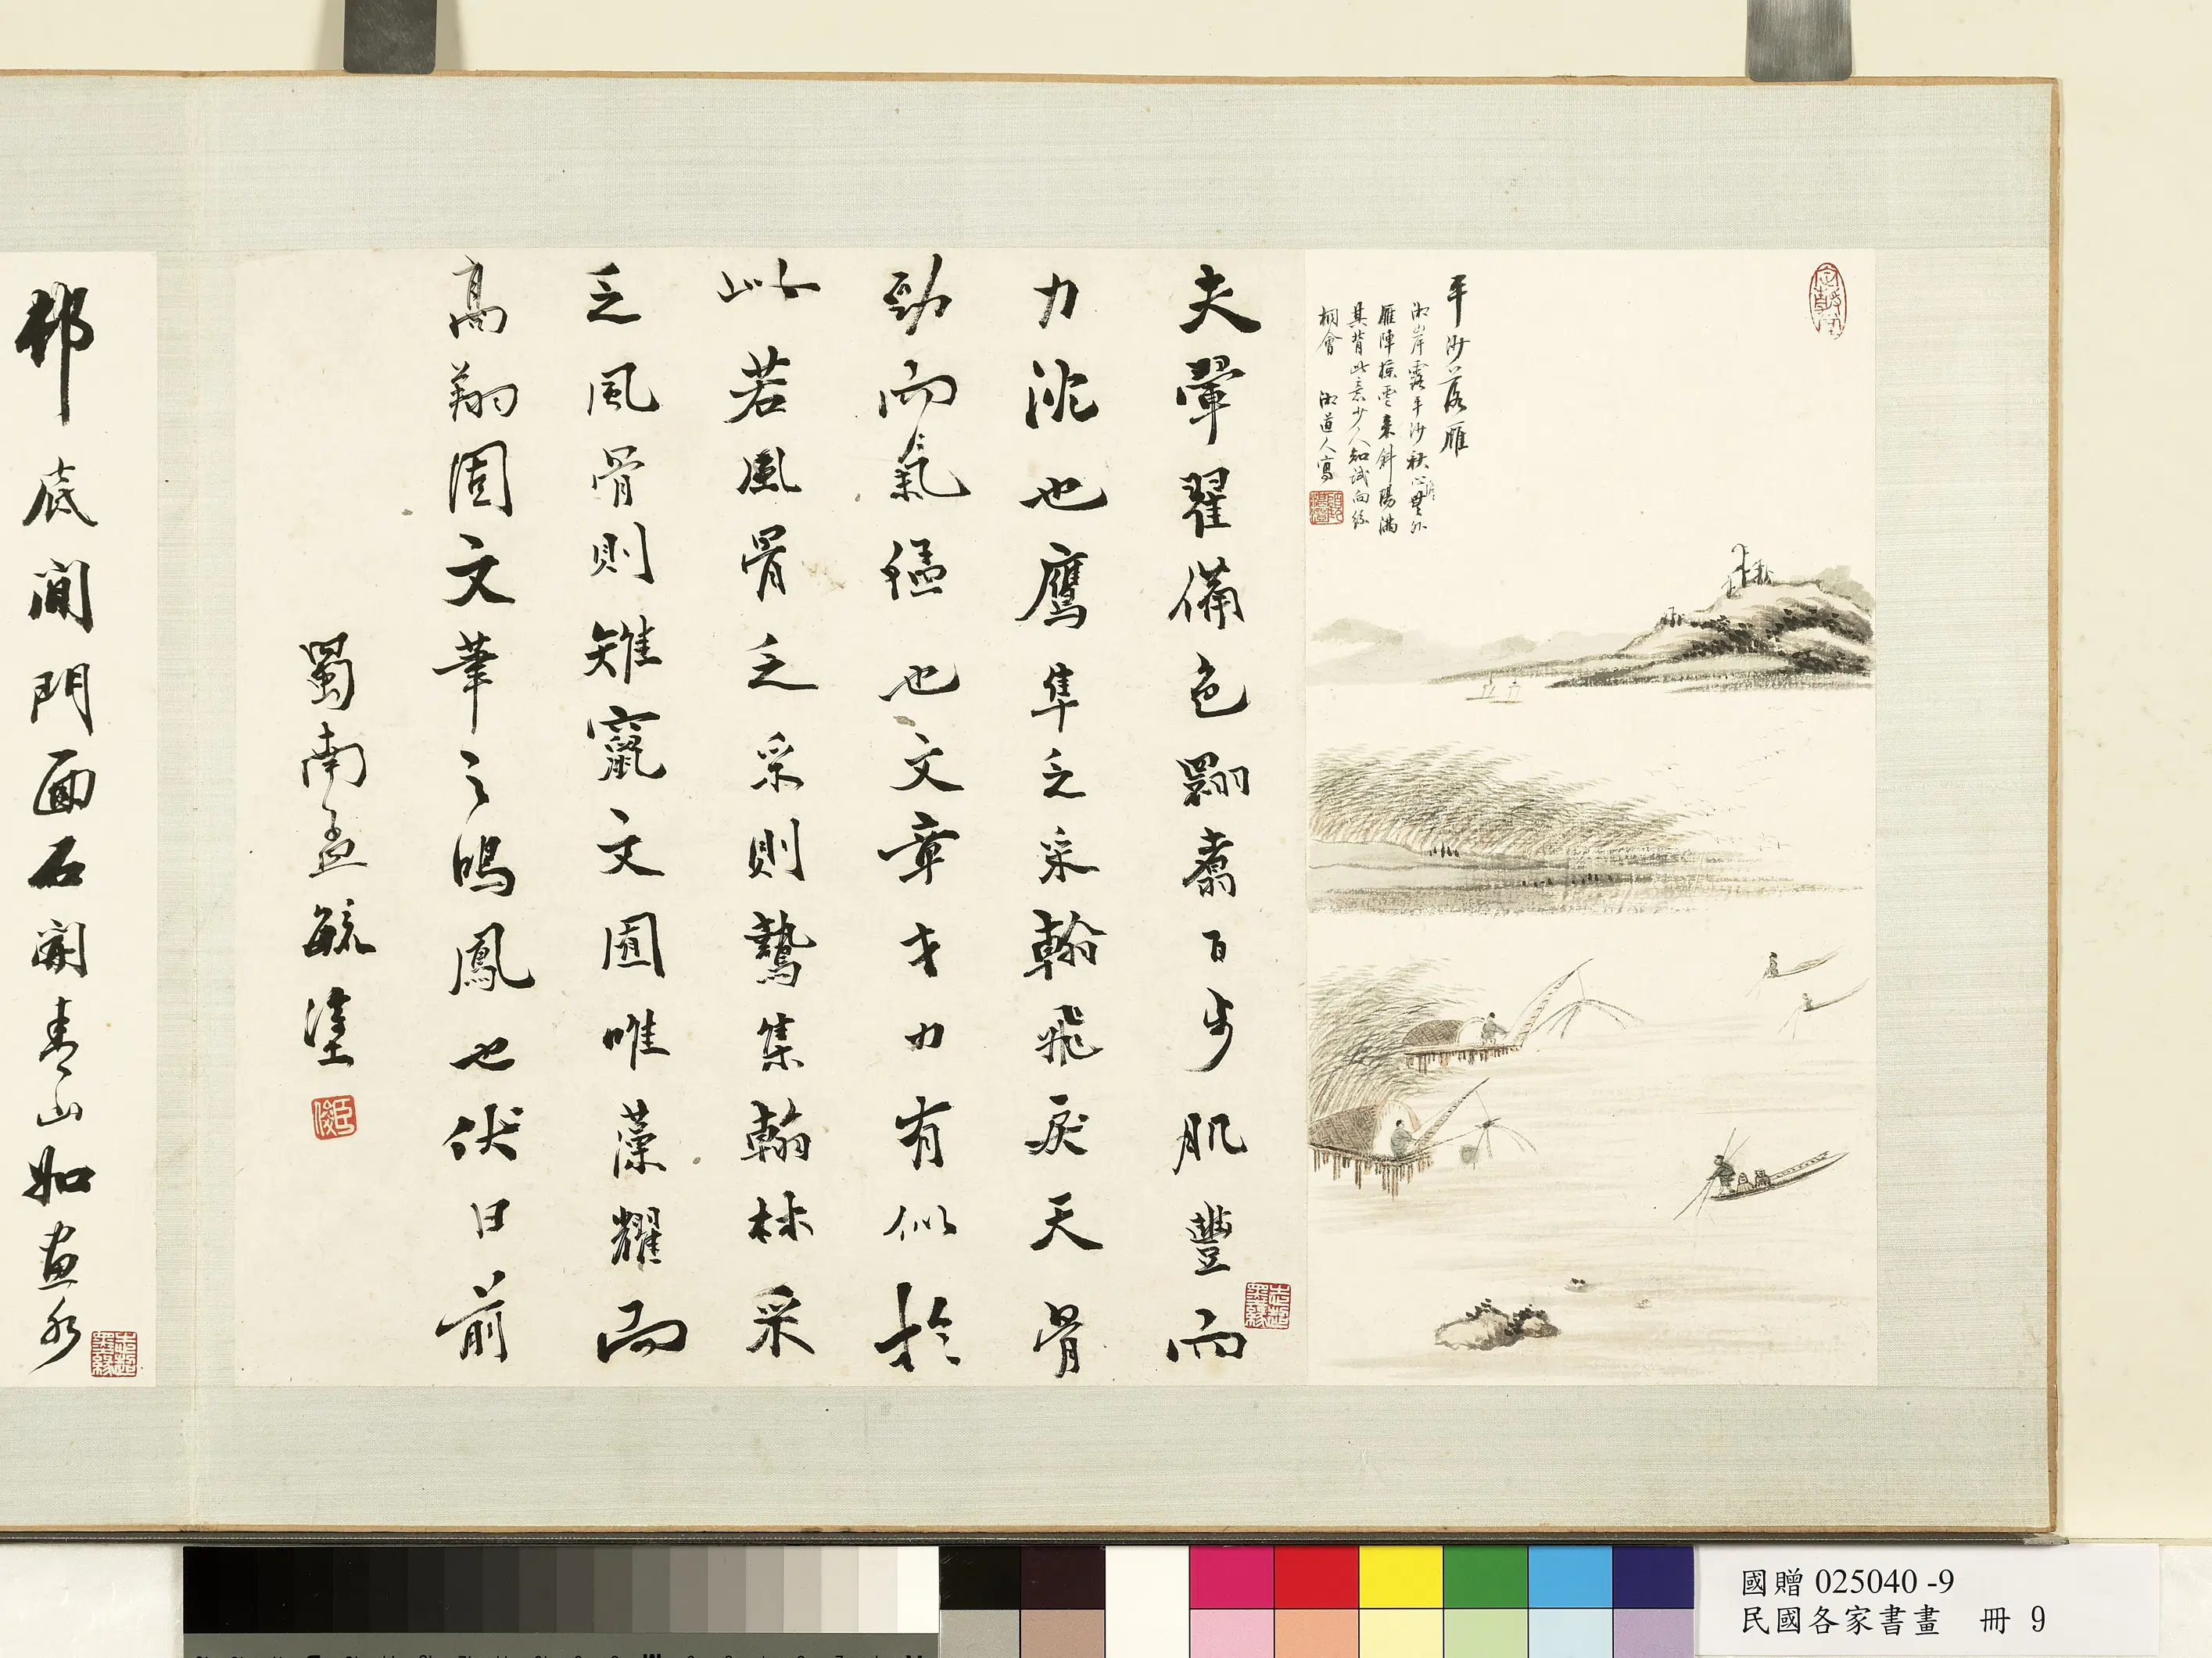 平沙落雁
湘岸露平沙秋心澹無外
雁陣掠雲來斜陽滿
其背此意少人知試向絲
桐會 湘道人寫
夫翬翟備色翾翥百步肌豐而
力沈也鷹隼乏采翰飛戾天骨
勁而氣猛也文章才力有似於
此若風骨乏采則鷙集翰林采
乏風骨則雉竄文囿唯藻耀而
高翔固文筆之鳴鳳也伏日前
蜀南孟毓
邨底閒門面石青山如畫水
國贈 025040 -9
民國各家書畫 冊 9